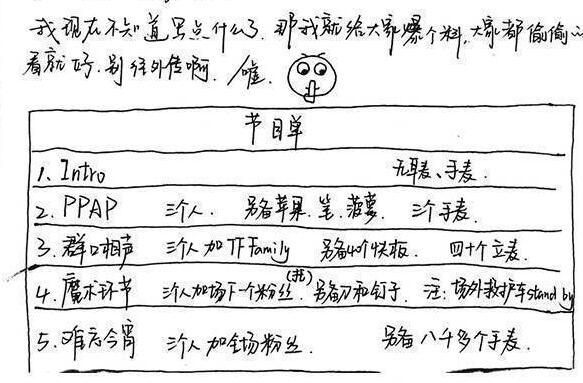 我现在不知道写点什么了,那我就给大家爆个料,大家都偷偷
看就好,别往外传啊,嘘.
节目单
1. Intro 无耳麦、手麦.
2. PPAP 三个人. 另备苹果.笔.菠萝. 三个手麦.
3. 群口相声 三个人加TFFamily 另备40个快板. 四十个立麦.
4. 魔术环节 三个人加场下一个粉丝(托). 另备刀和钉子. 注:场外救护车stand by
5. 难忘今宵 三个人加全场粉丝. 另备八千多个手麦.